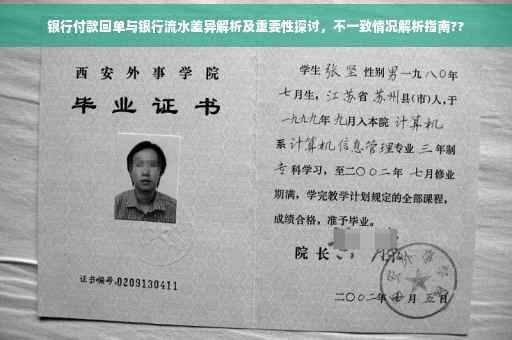 银行付款回单与银行流水差异解析及重要性探讨，不一致情况解析指南??
西安外事学院
毕业证书
证书编号:0209130411
学生 张坚 性别 男 一九八〇年
七月生，江苏省 苏州 县(市)人，于
一九九九年 九月入本院 计算机
系 计算机信息管理专业 三 年制
专 科学习，至二〇〇二年 七月修业
期满，学完教学计划规定的全部课程，
成绩合格，准予毕业。
院长
二〇〇二年 月 五日